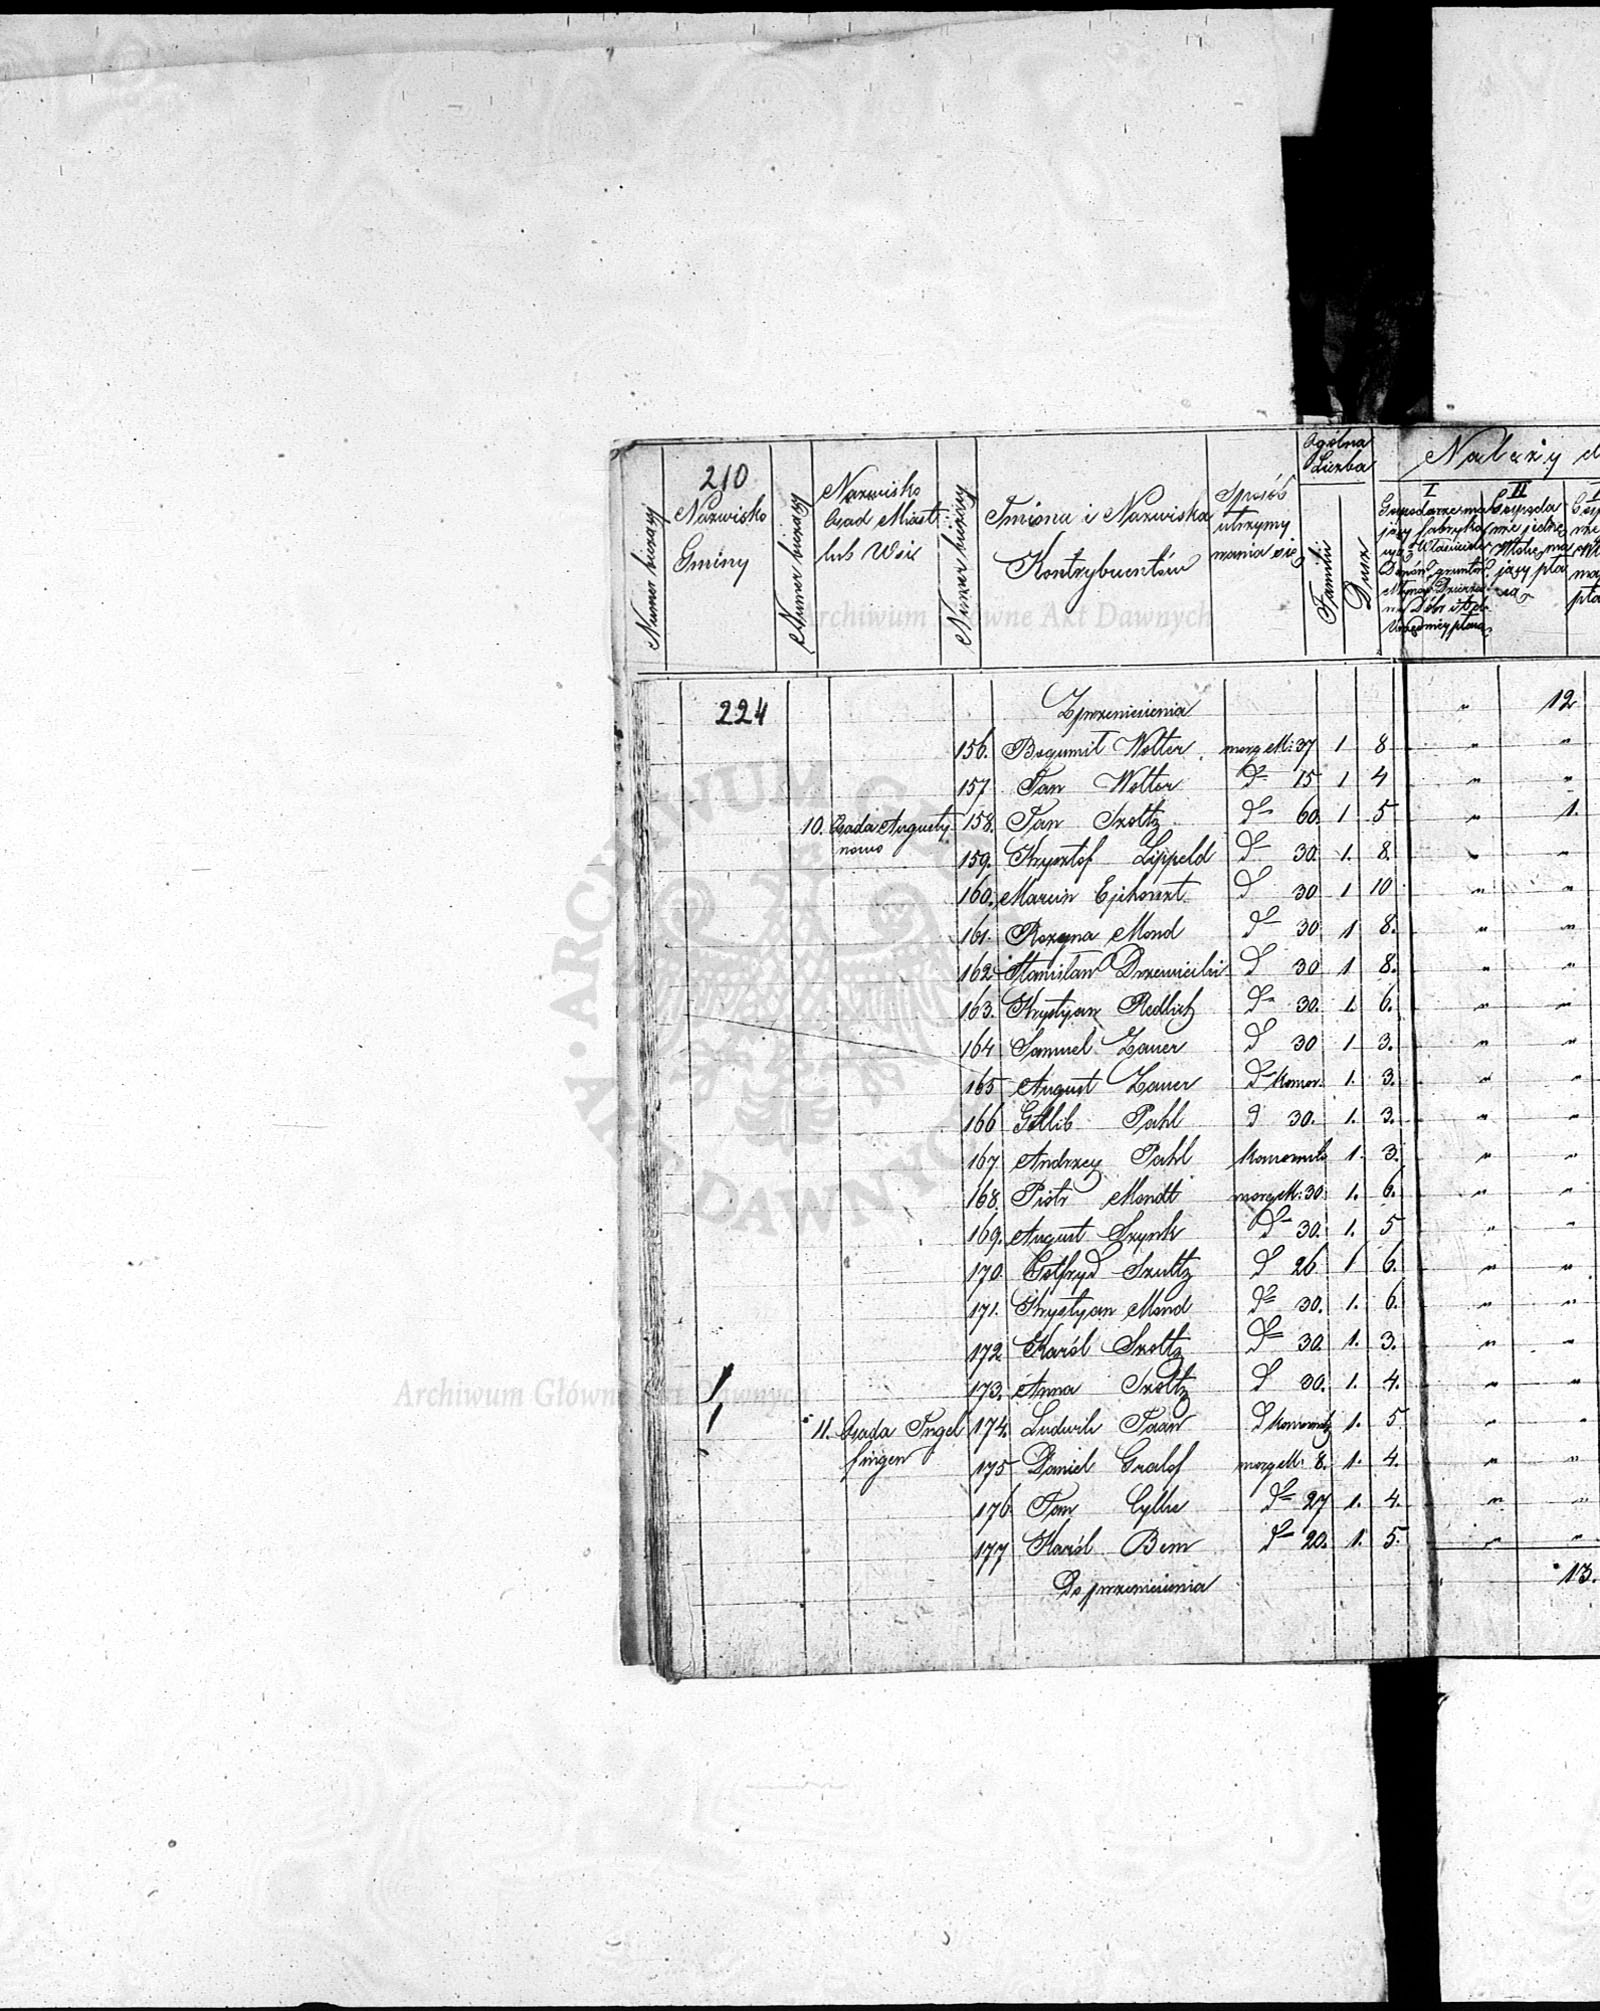 210
Numer bieżący
Nazwisko
Gminy
Numer bieżący
Nazwisko
Osad Miast
lub Wsi
Numer bieżący
Imiona i Nazwiska
Kontrybuentów
Sposób
utrzymy
wania się
Ogólna
Liczba
Familii
Dusz
Należy d
I
II
224
Z przeniesienia " 12
156. Bogumił Wolter morg M: 37 1 8 " "
157 Jan Wolter d° 15 1 4 " "
10. Osada Augusty 158. Jan Szoltz d° 60. 1 5 " 1.
nowo
159. Krysztof Lippeld d° 30. 1. 8. " "
160. Marcin Ejchorszt d° 30 1 10 " "
161. Rozyna Mond d° 30 1 8. " "
162 Stanisław Drzewiecki d° 30 1 8. " "
163. Krystyan Redlich d° 30. 1. 6. " "
164 Samuel Zauer d° 30 1 3. " "
165 August Zauer d° Komor. 1. 3. " "
166 Gottlib Pahl d° 30. 1. 3. " "
167 Andrzey Pahl Komornik 1. 3. " "
168. Piotr Mondt morg M: 30 1. 6. " "
169. August Szynk d° 30. 1. 5 " "
170. Gotfryd Szultz d° 26 1 6. " "
171. Krystyan Mond d° 30. 1. 6. " "
172 Karól Szoltz d° 30. 1. 3. " "
173. Anna Szoltz d° 30. 1. 4. " "
11. Osada Ingel 174. Ludwik Jaan d° Komornik 1. 5 " "
fingen
175 Daniel Gralof morg M: 8. 1. 4. " "
176 Jan Cylke d° 27 1. 4. " "
177 Karól Bem d° 20. 1. 5. " "
Do przeniesienia 13.
Archiwum Główne Akt Dawnych
Archiwum Główne Akt Dawnych
ARCHIWUM GŁÓWNE • AKT DAWNYCH •